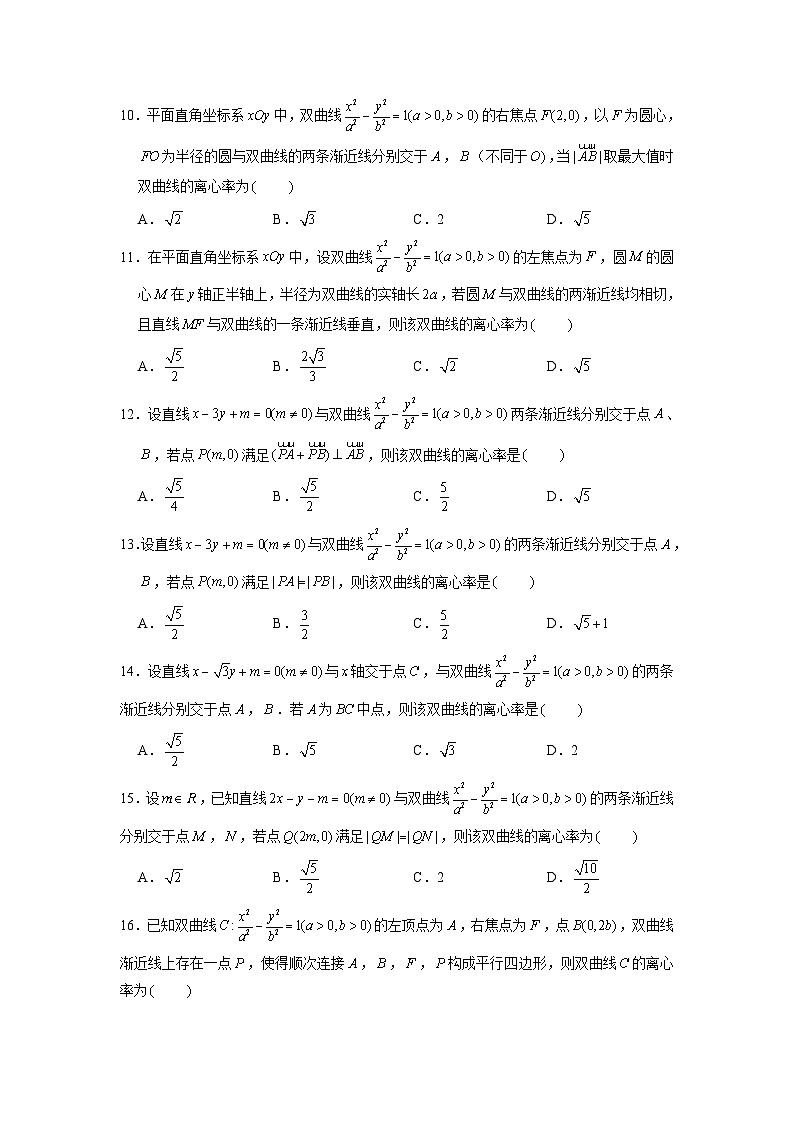 10．平面直角坐标系 xOy 中，双曲线 x²/a² − y²/b² = 1(a > 0, b > 0) 的右焦点 F(2,0)，以 F 为圆心，
FO 为半径的圆与双曲线的两条渐近线分别交于 A，B（不同于 O），当 | AB | 取最大值时
双曲线的离心率为(　　)
A．√2　B．√3　C．2　D．√5
11．在平面直角坐标系 xOy 中，设双曲线 x²/a² − y²/b² = 1(a > 0, b > 0) 的左焦点为 F，圆 M 的圆
心 M 在 y 轴正半轴上，半径为双曲线的实轴长 2a，若圆 M 与双曲线的两渐近线均相切，
且直线 MF 与双曲线的一条渐近线垂直，则该双曲线的离心率为(　　)
A．√5/2　B．2√3/3　C．√2　D．√5
12．设直线 x − 3y + m = 0(m ≠ 0) 与双曲线 x²/a² − y²/b² = 1(a > 0, b > 0) 两条渐近线分别交于点 A、
B，若点 P(m,0) 满足 (PA + PB) ⊥ AB，则该双曲线的离心率是(　　)
A．√5/4　B．√5/2　C．5/2　D．√5
13．设直线 x − 3y + m = 0(m ≠ 0) 与双曲线 x²/a² − y²/b² = 1(a > 0, b > 0) 的两条渐近线分别交于点 A，
B，若点 P(m,0) 满足 | PA |=| PB |，则该双曲线的离心率是(　　)
A．√5/2　B．3/2　C．5/2　D．√5 + 1
14．设直线 x − √3y + m = 0(m ≠ 0) 与 x 轴交于点 C，与双曲线 x²/a² − y²/b² = 1(a > 0, b > 0) 的两条
渐近线分别交于点 A，B．若 A 为 BC 中点，则该双曲线的离心率是(　　)
A．√5/2　B．√5　C．√3　D．2
15．设 m ∈ R，已知直线 2x − y − m = 0(m ≠ 0) 与双曲线 x²/a² − y²/b² = 1(a > 0, b > 0) 的两条渐近线
分别交于点 M，N，若点 Q(2m,0) 满足 | QM |=| QN |，则该双曲线的离心率为(　　)
A．√2　B．√5/2　C．2　D．√10/2
16．已知双曲线 C : x²/a² − y²/b² = 1(a > 0, b > 0) 的左顶点为 A，右焦点为 F，点 B(0,2b)，双曲线
渐近线上存在一点 P，使得顺次连接 A，B，F，P 构成平行四边形，则双曲线 C 的离心
率为(　　)